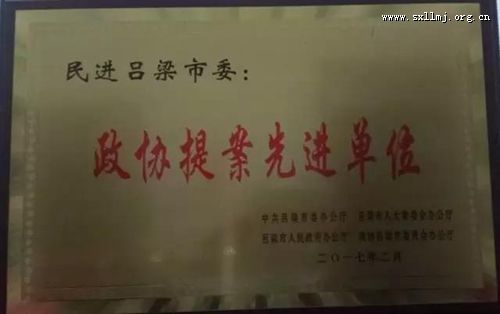 www.sxllmj.org.cn
民进吕梁市委：
政协提案先进单位
中共吕梁市委办公厅 吕梁市人大常委会办公厅
吕梁市人民政府办公厅 政协吕梁市委员会办公厅
二〇一七年二月